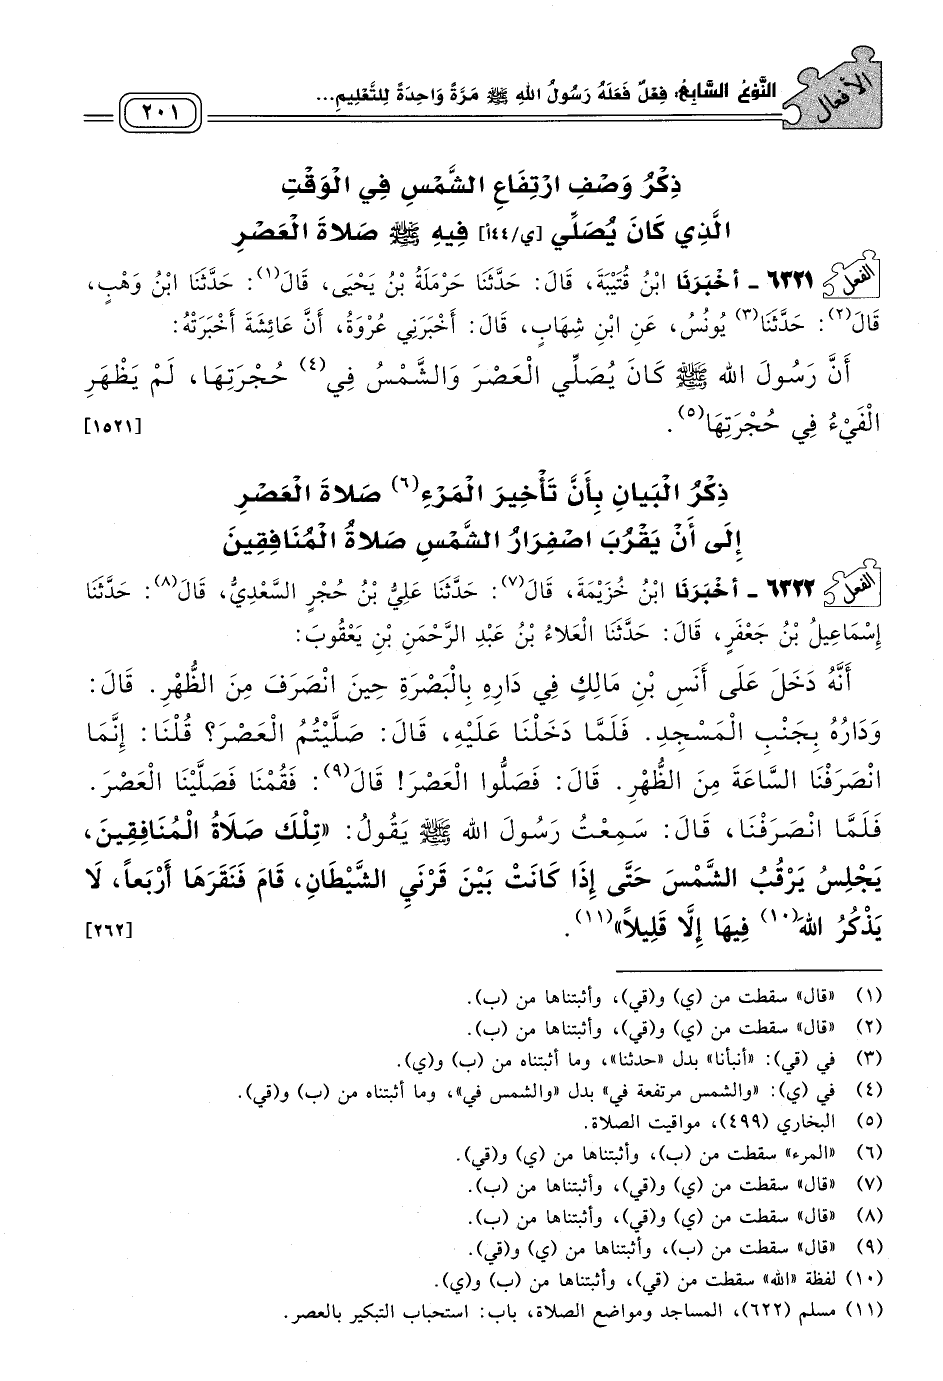 الأفعال
النَّوْعُ السَّابِعُ: فِعْلٌ فَعَلَهُ رَسُولُ اللهِ ﷺ مَرَّةً وَاحِدَةً لِلتَّعْلِيمِ...
٢٠١
ذِكْرُ وَصْفِ ارْتِفَاعِ الشَّمْسِ فِي الْوَقْتِ
الَّذِي كَانَ يُصَلِّي [ي/٤٤أ] فِيهِ ﷺ صَلَاةَ الْعَصْرِ
الفعل ٦٣٢١ - أخْبَرَنَا ابْنُ قُتَيْبَةَ، قَالَ: حَدَّثَنَا حَرْمَلَةُ بْنُ يَحْيَى، قَالَ(١): حَدَّثَنَا ابْنُ وَهْبٍ،
قَالَ(٢): حَدَّثَنَا(٣) يُونُسُ، عَنِ ابْنِ شِهَابٍ، قَالَ: أَخْبَرَنِي عُرْوَةُ، أَنَّ عَائِشَةَ أَخْبَرَتْهُ:
أَنَّ رَسُولَ الله ﷺ كَانَ يُصَلِّي الْعَصْرَ وَالشَّمْسُ فِي(٤) حُجْرَتِهَا، لَمْ يَظْهَرِ
الْفَيْءُ فِي حُجْرَتِهَا(٥). [١٥٢١]
ذِكْرُ الْبَيَانِ بِأَنَّ تَأْخِيرَ الْمَرْءِ(٦) صَلَاةَ الْعَصْرِ
إِلَى أَنْ يَقْرُبَ اصْفِرَارُ الشَّمْسِ صَلَاةُ الْمُنَافِقِينَ
الفعل ٦٣٢٢ - أخْبَرَنَا ابْنُ خُزَيْمَةَ، قَالَ(٧): حَدَّثَنَا عَلِيُّ بْنُ حُجْرٍ السَّعْدِيُّ، قَالَ(٨): حَدَّثَنَا
إِسْمَاعِيلُ بْنُ جَعْفَرٍ، قَالَ: حَدَّثَنَا الْعَلَاءُ بْنُ عَبْدِ الرَّحْمَنِ بْنِ يَعْقُوبَ:
أَنَّهُ دَخَلَ عَلَى أَنَسِ بْنِ مَالِكٍ فِي دَارِهِ بِالْبَصْرَةِ حِينَ انْصَرَفَ مِنَ الظُّهْرِ. قَالَ:
وَدَارُهُ بِجَنْبِ الْمَسْجِدِ. فَلَمَّا دَخَلْنَا عَلَيْهِ، قَالَ: صَلَّيْتُمُ الْعَصْرَ؟ قُلْنَا: إِنَّمَا
انْصَرَفْنَا السَّاعَةَ مِنَ الظُّهْرِ. قَالَ: فَصَلُّوا الْعَصْرَ! قَالَ(٩): فَقُمْنَا فَصَلَّيْنَا الْعَصْرَ.
فَلَمَّا انْصَرَفْنَا، قَالَ: سَمِعْتُ رَسُولَ الله ﷺ يَقُولُ: «تِلْكَ صَلَاةُ الْمُنَافِقِينَ،
يَجْلِسُ يَرْقُبُ الشَّمْسَ حَتَّى إِذَا كَانَتْ بَيْنَ قَرْنَيِ الشَّيْطَانِ، قَامَ فَنَقَرَهَا أَرْبَعاً، لَا
يَذْكُرُ اللهَ(١٠) فِيهَا إِلَّا قَلِيلاً»(١١). [٢٦٢]
(١) «قال» سقطت من (ي) و(قي)، وأثبتناها من (ب).
(٢) «قال» سقطت من (ي) و(قي)، وأثبتناها من (ب).
(٣) في (قي): «أنبأنا» بدل «حدثنا»، وما أثبتناه من (ب) و(ي).
(٤) في (ي): «والشمس مرتفعة في» بدل «والشمس في»، وما أثبتناه من (ب) و(قي).
(٥) البخاري (٤٩٩)، مواقيت الصلاة.
(٦) «المرء» سقطت من (ب)، وأثبتناها من (ي) و(قي).
(٧) «قال» سقطت من (ي) و(قي)، وأثبتناها من (ب).
(٨) «قال» سقطت من (ي) و(قي)، وأثبتناها من (ب).
(٩) «قال» سقطت من (ب)، وأثبتناها من (ي) و(قي).
(١٠) لفظة «الله» سقطت من (قي)، وأثبتناها من (ب) و(ي).
(١١) مسلم (٦٢٢)، المساجد ومواضع الصلاة، باب: استحباب التبكير بالعصر.